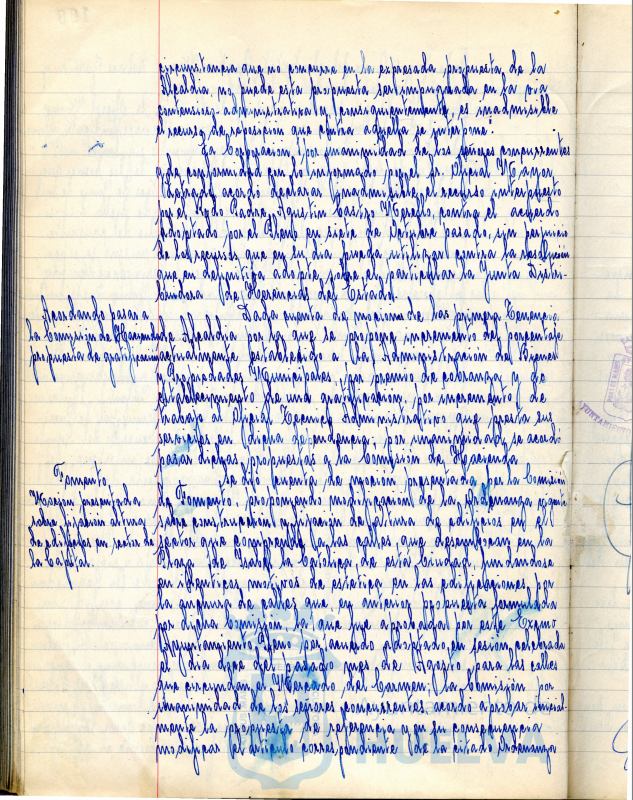 circunstancia que no concurre en la expresada propuesta de la
Alcaldía, no puede esta propuesta ser impugnada en la vía
contencioso administrativa y, consiguientemente, es inadmisible
el recurso de reposición que contra aquella se interpone.
La Corporación, por unanimidad de los señores concurrentes
y de conformidad con lo informado por el Sr. Oficial Mayor
Letrado acordó declarar inadmisible el recurso interpuesto
por el Rvdo Padre Agustín Castro Merello, contra el acuerdo
adoptado por el Pleno en siete de Octubre pasado, sin perjuicio
de los recursos que en su día pueda utilizar contra la resolución
que en definitiva adopte sobre el particular la Junta Distri-
buidora de Herencias del Estado.
Acordando pasar a
la Comisión de Hacienda
propuesta de gratificación
Dada cuenta de mociones de las primera Tenencia
de Alcaldía por las que se propone incremento del porcentaje
actualmente establecido a la Administración de Bienes
y Propiedades Municipales, en premio de cobranza y de
establecimiento de una gratificación, por incremento de
trabajo al Oficial Técnico Administrativo que presta sus
servicios en dicha dependencia, por unanimidad, se acordó
pasar dichas propuestas a la Comisión de Hacienda.
Fomento,
Moción presentada
sobre fijación altura
de edificios en sector de
la Capital.
Se dió cuenta de moción presentada por la Comisión
de Fomento, proponiendo modificación de la Ordenanza vigente
sobre construcción y fijación de altura de edificios en el
sector que comprende las calles que desembocan en la
Plaza de Isabel la Católica de esta Ciudad, fundandose
en idénticos motivos de estética en las edificaciones, por
la anchura de calles que en anterior propuesta formulada
por dicha Comisión, la que fue aprobada por este Excmo
Ayuntamiento Pleno por acuerdo adoptado en sesión celebrada
el día doce del pasado mes de Agosto para las calles
que circundan el Mercado del Carmen; la Comisión por
unanimidad de los señores concurrentes acordó aprobar inicial-
mente la propuesta de referencia y en su consecuencia
modificar el artículo correspondiente de la citada Ordenanza
HUELVA